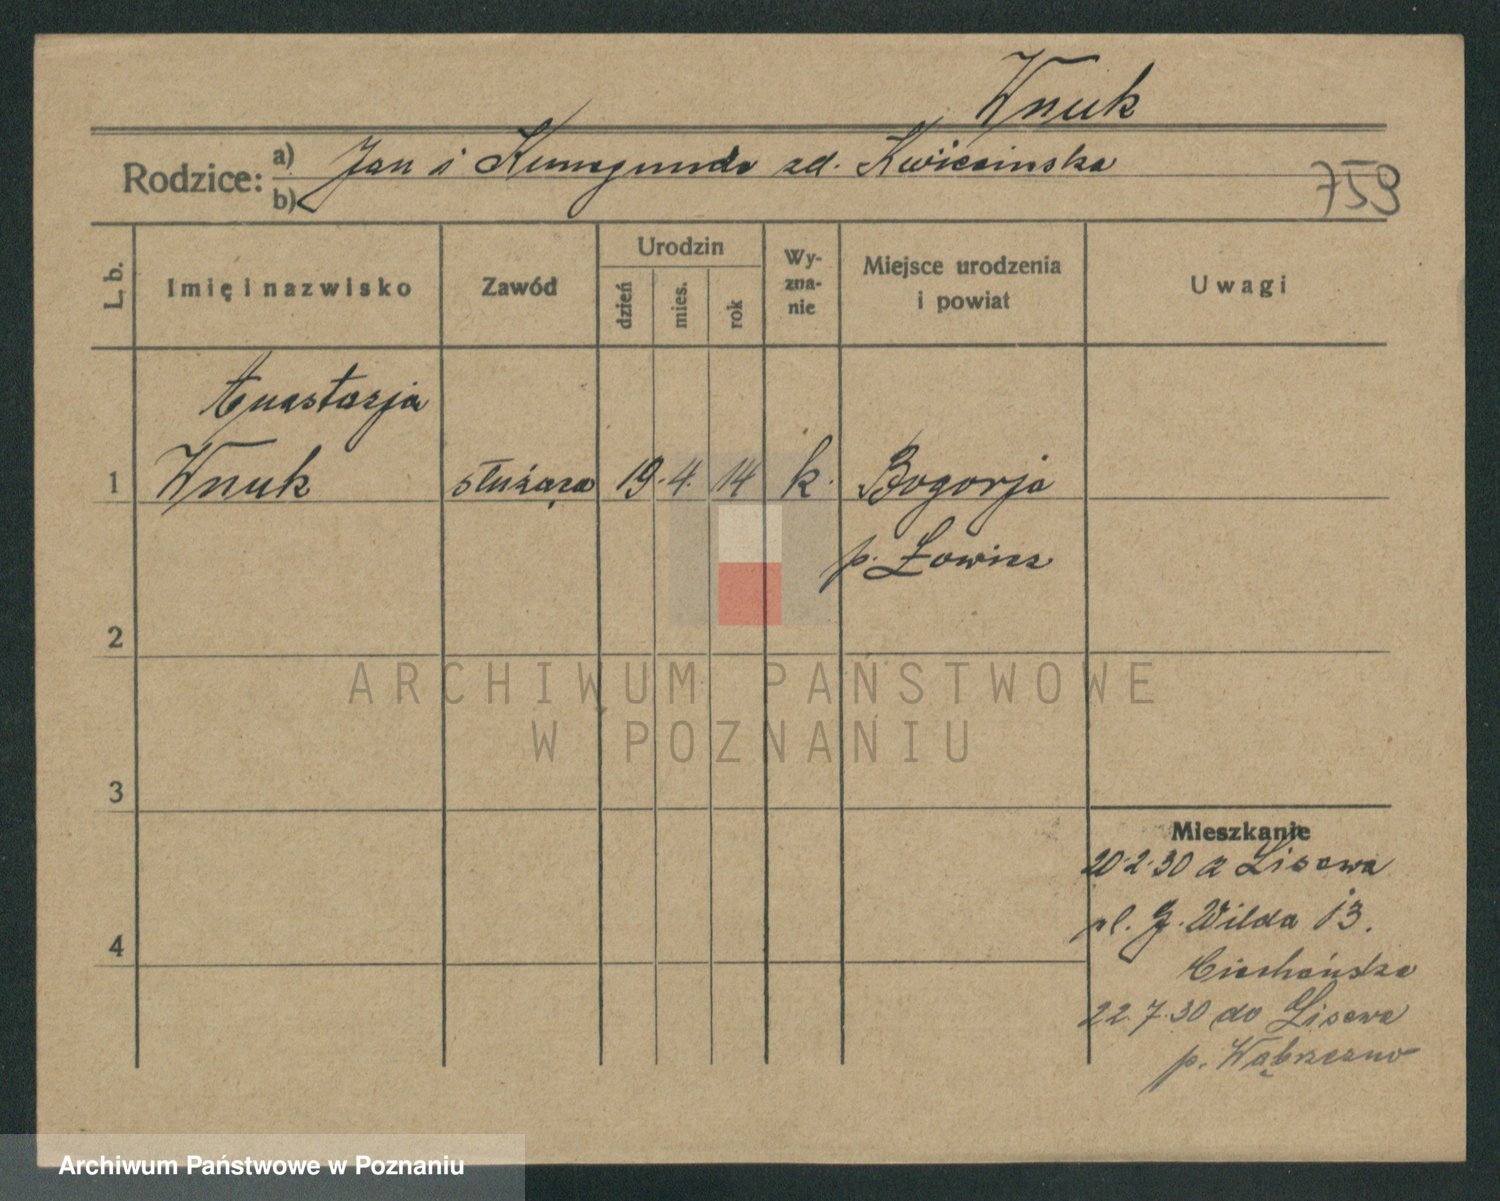 Wnuk
Rodzice: a) Jan i Kunegunda zd. Kwiecińska
b)
759
L. b.
Imię i nazwisko
Zawód
Urodzin
dzień
mies.
rok
Wy-
zna-
nie
Miejsce urodzenia
i powiat
Uwagi
Anastazja
1 Wnuk służąca 19. 4. 14 k. Bogorja
p. Łowicz
2
ARCHIWUM PAŃSTWOWE
W POZNANIU
3
Mieszkanie
20.2.30 z Lisewa
pl. G. Wilda 13.
4
Ciechańska
22.7.30 do Lisewa
p. Wąbrzeźno
Archiwum Państwowe w Poznaniu